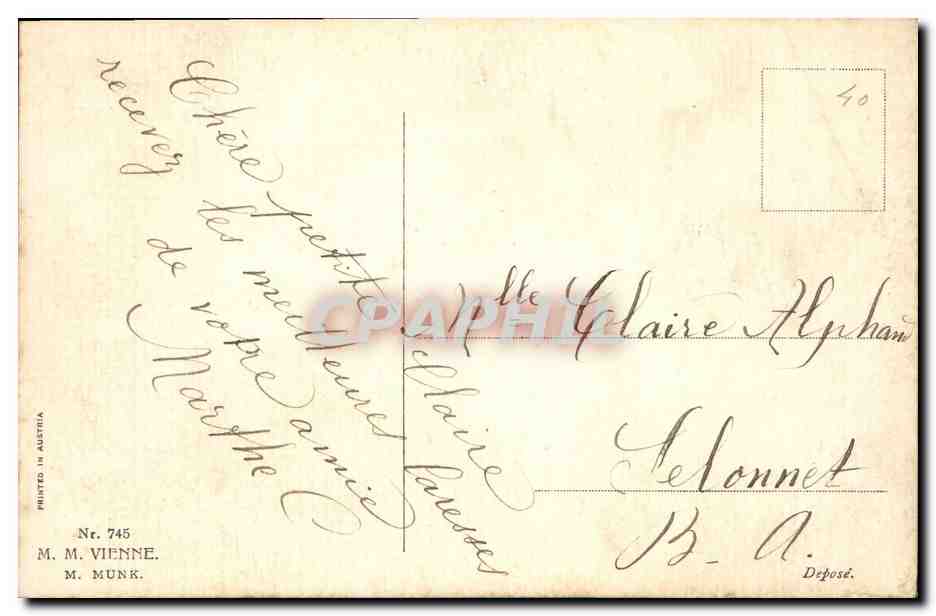 Chère petite Claire
recevez les meilleures caresses
de votre amie
Marthe C
40
Mlle Claire Alphand
Selonnet
B. A.
CPAPHIL
PRINTED IN AUSTRIA
Nr. 745
M. M. VIENNE.
M. MUNK.
Deposé.